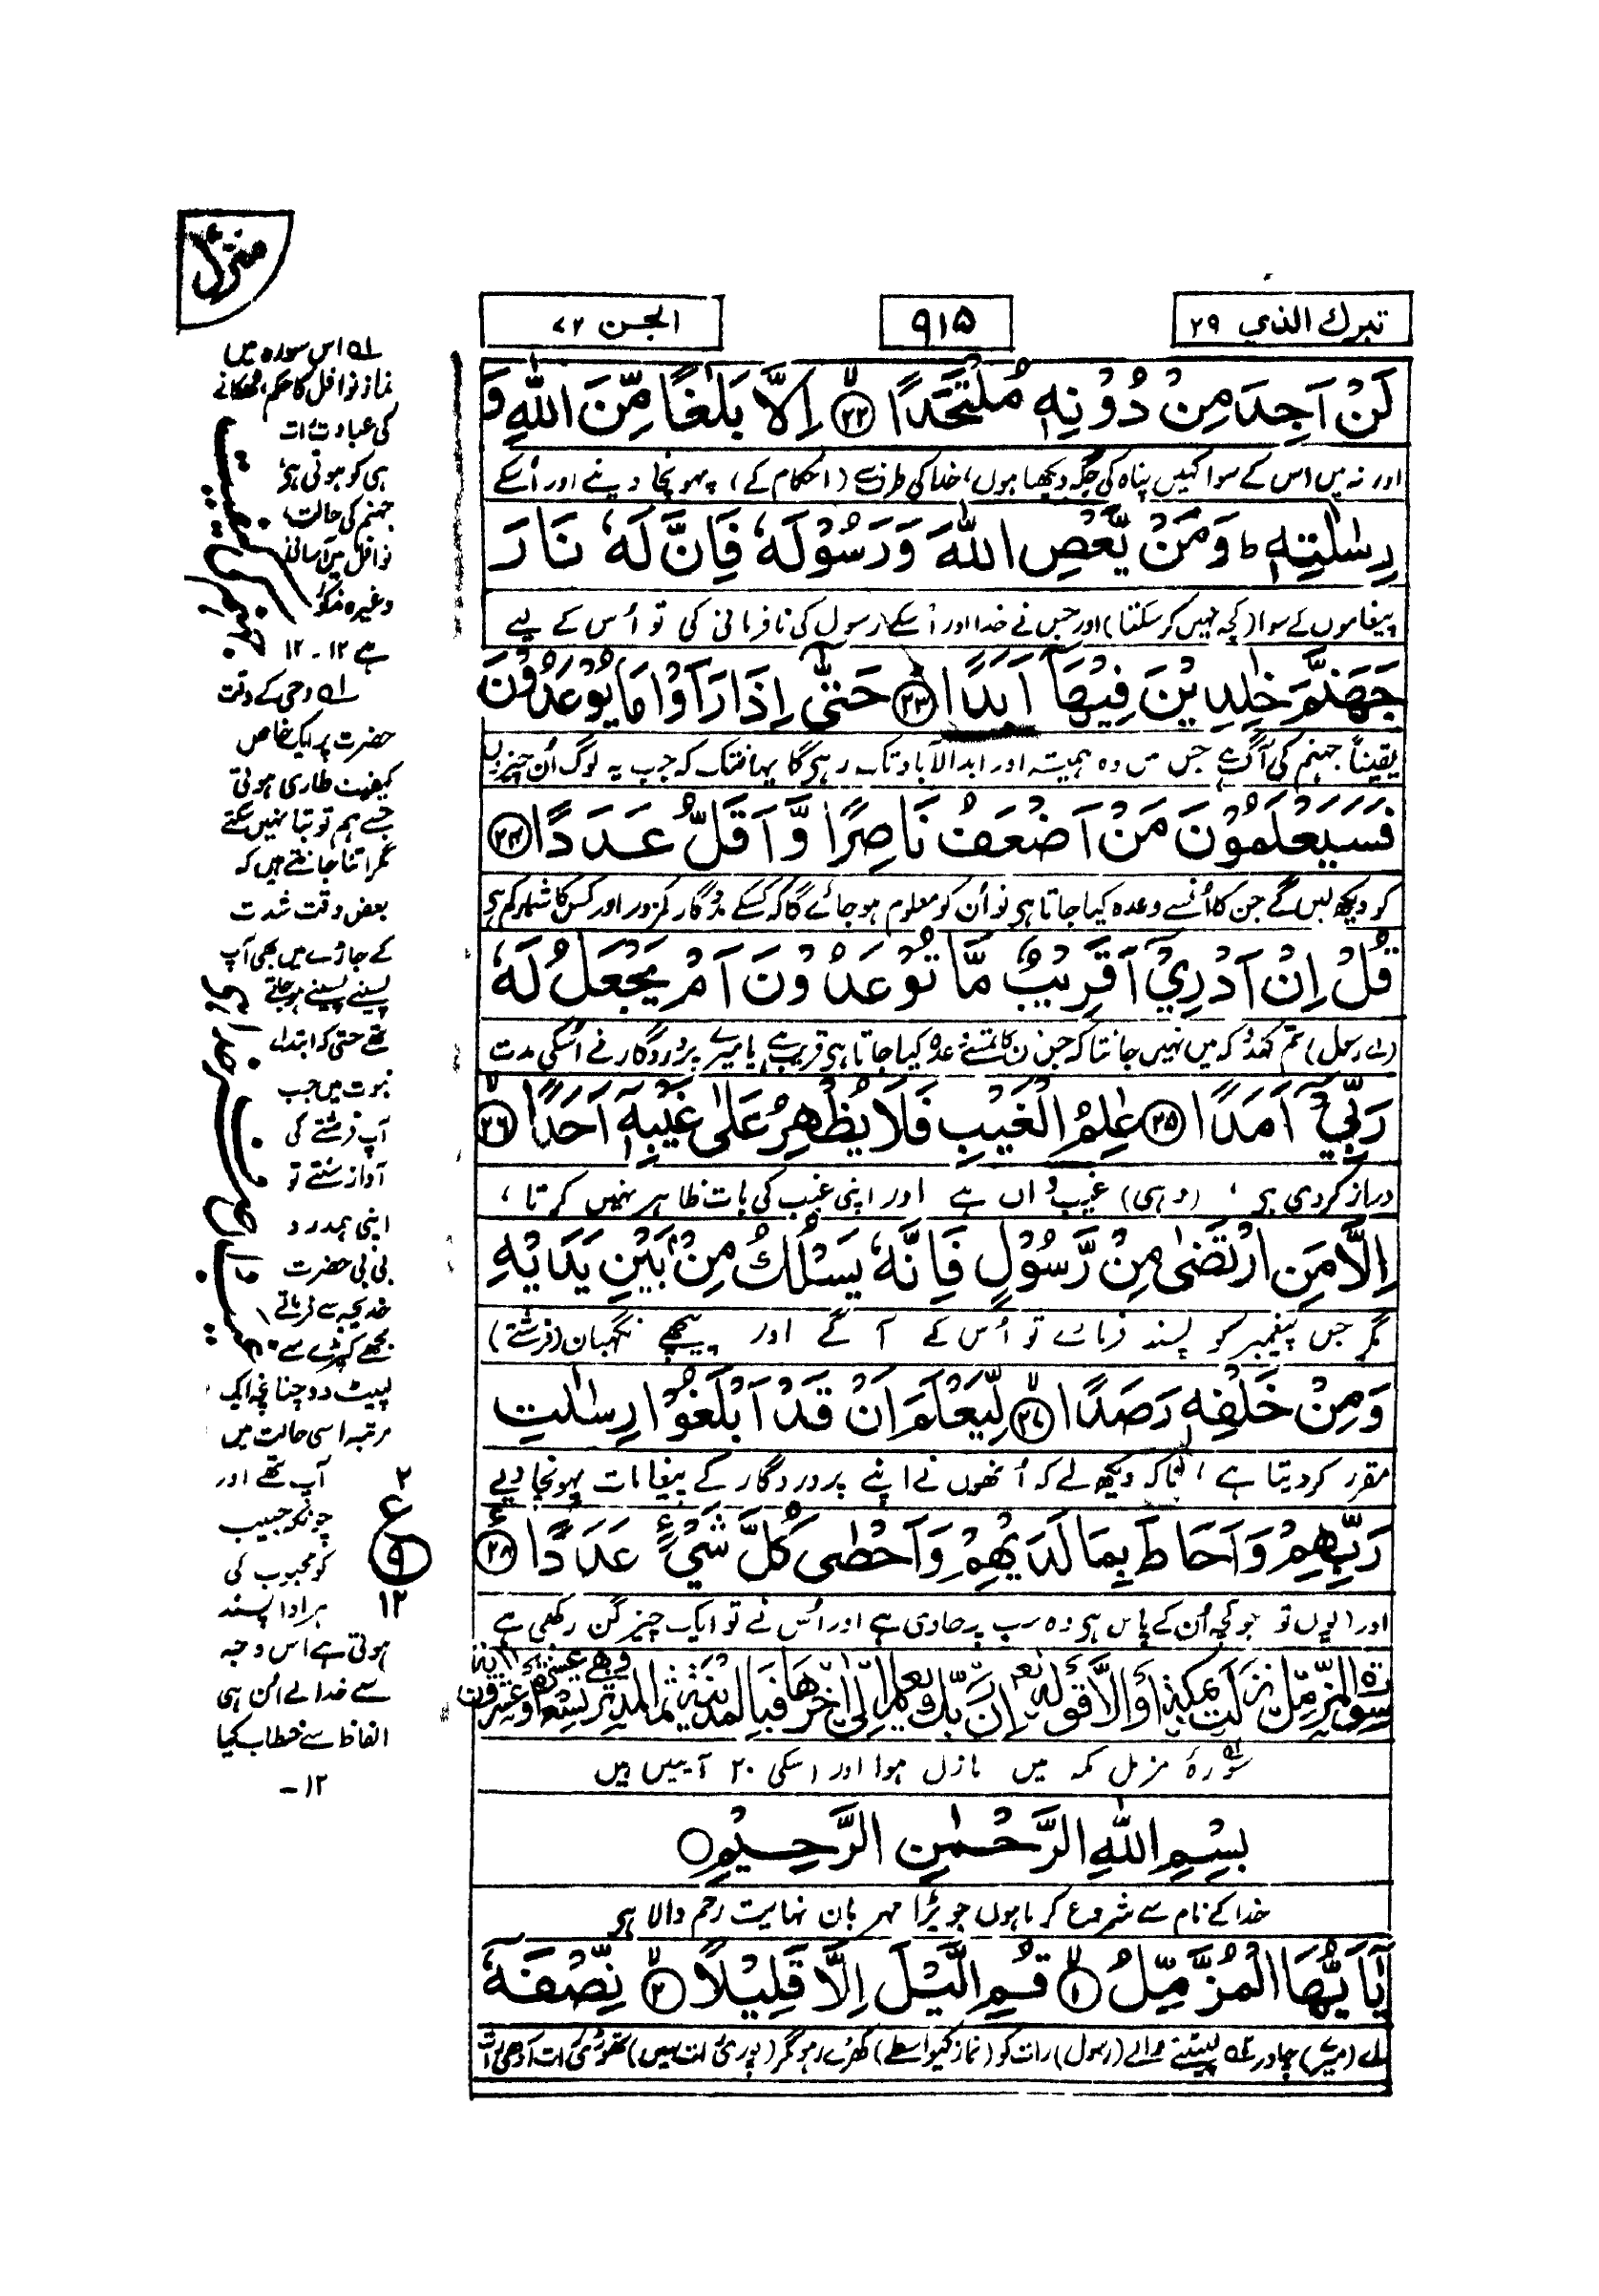 تبرك الذي ۲۹
۹۱۵
الجن ۷۲
لَنْ اَجِدَ مِنْ دُوْنِهٖ مُلْتَحَدًا ۲۲ اِلَّا بَلٰغًا مِّنَ اللّٰهِ وَ
اور نہ میں اس کے سوا کہیں پناہ کی جگہ دیکھتا ہوں، خدا کی طرف سے (احکام کے) پہونچا دینے اور اُسکے
رِسٰلٰتِهٖ ط وَمَنْ يَّعْصِ اللّٰهَ وَرَسُوْلَهٗ فَاِنَّ لَهٗ نَارَ
پیغاموں کے سوا (کچھ نہیں کر سکتا) اور جس نے خدا اور اُسکے رسول کی نافرمانی کی تو اُس کے لیے
جَهَنَّمَ خٰلِدِيْنَ فِيْهَاۤ اَبَدًا ۲۳ حَتّٰىۤ اِذَا رَاَوْا مَا يُوْعَدُوْنَ
یقیناً جہنم کی آگ ہے جس میں وہ ہمیشہ اور ابدالآباد تک رہے گا یہانتک کہ جب یہ لوگ اُن چیزوں
فَسَيَعْلَمُوْنَ مَنْ اَضْعَفُ نَاصِرًا وَّاَقَلُّ عَدَدًا ۲۴
کو دیکھ لیں گے جن کا اُنسے وعدہ کیا جاتا ہے تو اُن کو معلوم ہو جائے گا کہ کسکے مددگار کمزور اور کس کا شمار کم ہے
قُلْ اِنْ اَدْرِيْۤ اَقَرِيْبٌ مَّا تُوْعَدُوْنَ اَمْ يَجْعَلُ لَهٗ
(اے رسول) تم کہدو کہ میں نہیں جانتا کہ جس دن کا تمسے وعدہ کیا جاتا ہے قریب ہے یا میرے پروردگار نے اُسکی مدت
رَبِّيْۤ اَمَدًا ۲۵ عٰلِمُ الْغَيْبِ فَلَا يُظْهِرُ عَلٰى غَيْبِهٖۤ اَحَدًا ۲۶
دراز کر دی ہے، (وہی) غیب داں ہے اور اپنی غیب کی بات ظاہر نہیں کرتا،
اِلَّا مَنِ ارْتَضٰى مِنْ رَّسُوْلٍ فَاِنَّهٗ يَسْلُكُ مِنْۢ بَيْنِ يَدَيْهِ
مگر جس پیغمبر کو پسند فرمائے تو اُس کے آگے اور پیچھے نگہبان (فرشتے)
وَمِنْ خَلْفِهٖ رَصَدًا ۲۷ لِّيَعْلَمَ اَنْ قَدْ اَبْلَغُوْا رِسٰلٰتِ
مقرر کر دیتا ہے، تاکہ دیکھ لے کہ اُنھوں نے اپنے پروردگار کے پیغامات پہونچا دیے
رَبِّهِمْ وَاَحَاطَ بِمَا لَدَيْهِمْ وَاَحْصٰى كُلَّ شَيْءٍ عَدَدًا ۲۸
اور (یوں تو) جو کچھ اُن کے پاس ہے وہ سب پر حاوی ہے اور اُس نے تو ایک ایک چیز گن رکھی ہے
سورة المزمل نزلت بمكة او الا قوله ان ربك يعلم الى اخرها فبالمدينة
سورۂ مزمل مکہ میں نازل ہوا اور اسکی ۲۰ آیتیں ہیں
بِسْمِ اللّٰهِ الرَّحْمٰنِ الرَّحِيْمِ
خدا کے نام سے شروع کرتا ہوں جو بڑا مہربان نہایت رحم والا ہے
يٰۤاَيُّهَا الْمُزَّمِّلُ ۱ قُمِ الَّيْلَ اِلَّا قَلِيْلًا ۲ نِّصْفَهٗۤ
اے (میرے) چادر لپیٹنے والے (رسول) رات کو (نماز کیواسطے) کھڑے رہو مگر (پوری رات نہیں) تھوڑی رات آدھی رات
منزل
اس سورہ میں
نماز نوافل کا حکم،
کی عبادت
ہی کو ہوتی ہے
جہنم کی حالت،
نوافل میں آسانی
وغیرہ مذکور
ہے ۱۲-۱۲
وحی کے وقت
حضرت پر ایک خاص
کیفیت طاری ہوتی
جسے ہم تو بتا نہیں سکتے
مگر اتنا جانتے ہیں کہ
بعض وقت شدت
کے جاڑے میں بھی آپ
پسینے پسینے ہو جاتے
تھے حتی کہ ابتداء
نبوت میں جب
آپ فرشتے کی
آواز سنتے تو
اپنی ہمدرد
بی بی حضرت
خدیجہ سے فرماتے
مجھے کپڑے سے
لپیٹ دو چنانچہ ایک
مرتبہ اسی حالت میں
آپ تھے اور
چونکہ حبیب
کو محبوب کی
ہر ادا پسند
ہوتی ہے اس وجہ
سے خدا نے اُن ہی
الفاظ سے خطاب کیا
۱۲-
۲
ع
۹
۱۲